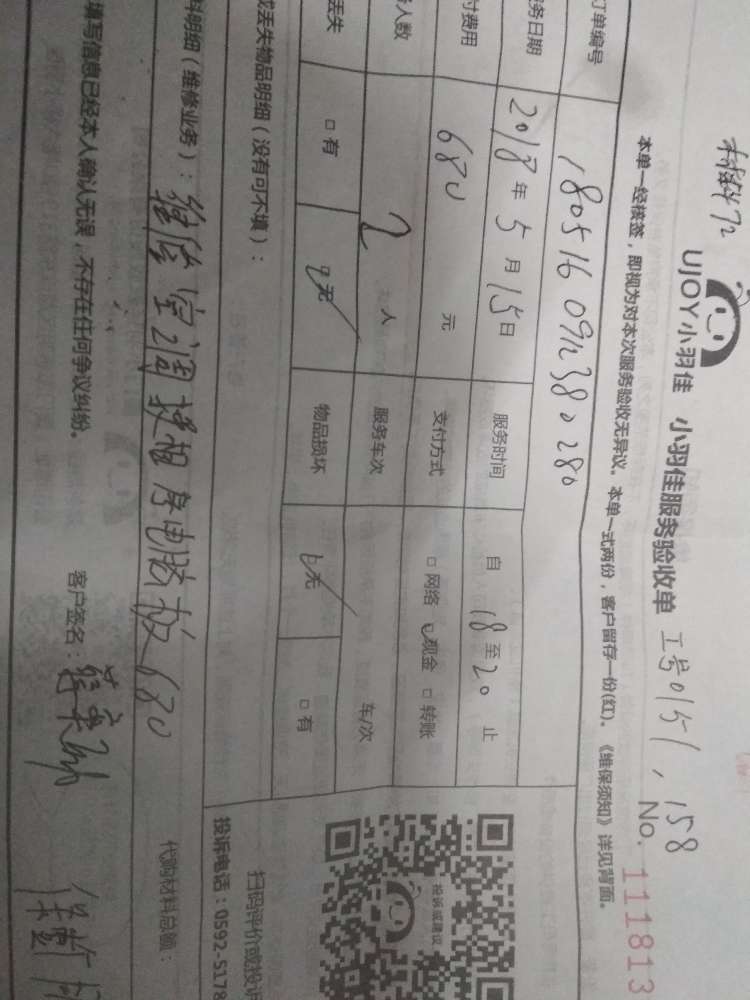 UJOY小羽佳 小羽佳服务验收单 工号0151,158
No. 111813
本单一经核签，即视为对本次服务验收无异议。本单一式两份，客户留存一份(红)。《维保须知》详见背面。
订单编号 180516 09123 80 280
务日期 2018年5月15日 服务时间 自 18 至 20 止
付费用 680 元 支付方式 □ 网络 现金 □ 转账
人数 2 人 服务车次 车/次
丢失 □ 有 无 物品损坏 无 □ 有
或丢失物品明细（没有可不填）：
投诉或建议
扫码评价或投诉
投诉电话：0592-5178
料明细（维修业务）：维修空调换相序电脑板680
代购材料总额：
填写信息已经本人确认无误，不存在任何争议纠纷。
客户签名：